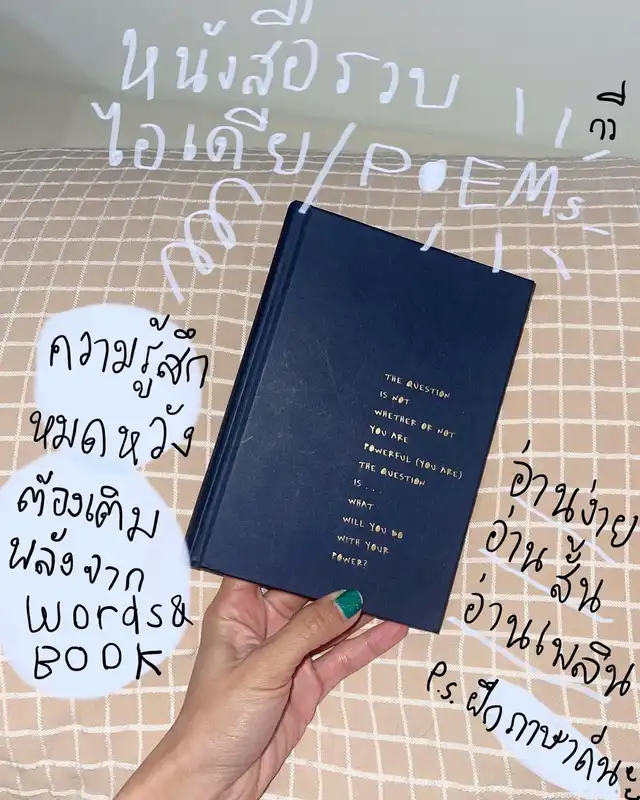 หนังสือรวบ
ไอเดีย/POEMs
กวี
ความรู้สึก
หมดหวัง
ต้องเติม
พลังจาก
words&
BOOK
THE QUESTION
IS NOT
WHETHER OR NOT
YOU ARE
POWERFUL (YOU ARE)
THE QUESTION
IS...
WHAT
WILL YOU DO
WITH YOUR
POWER?
อ่านง่าย
อ่านสั้น
อ่านเพลิน
P.S. ฝึกภาษาด้วย